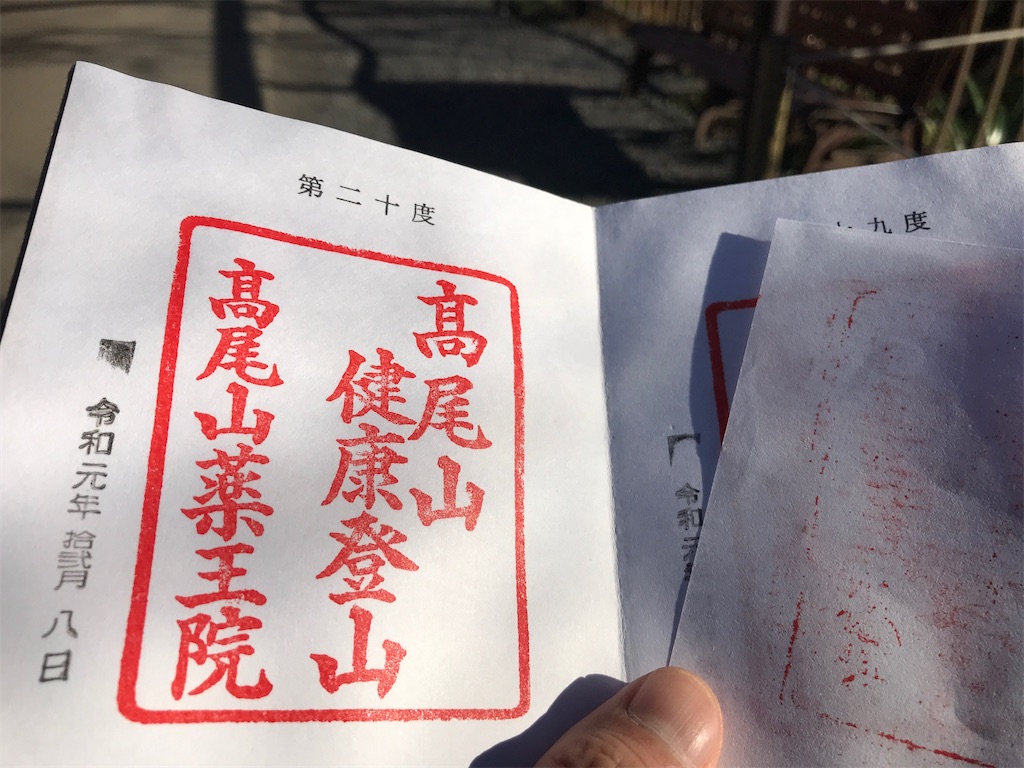 九度
令和
第二十度
髙尾山
健康登山
髙尾山薬王院
令和元年拾弐月八日